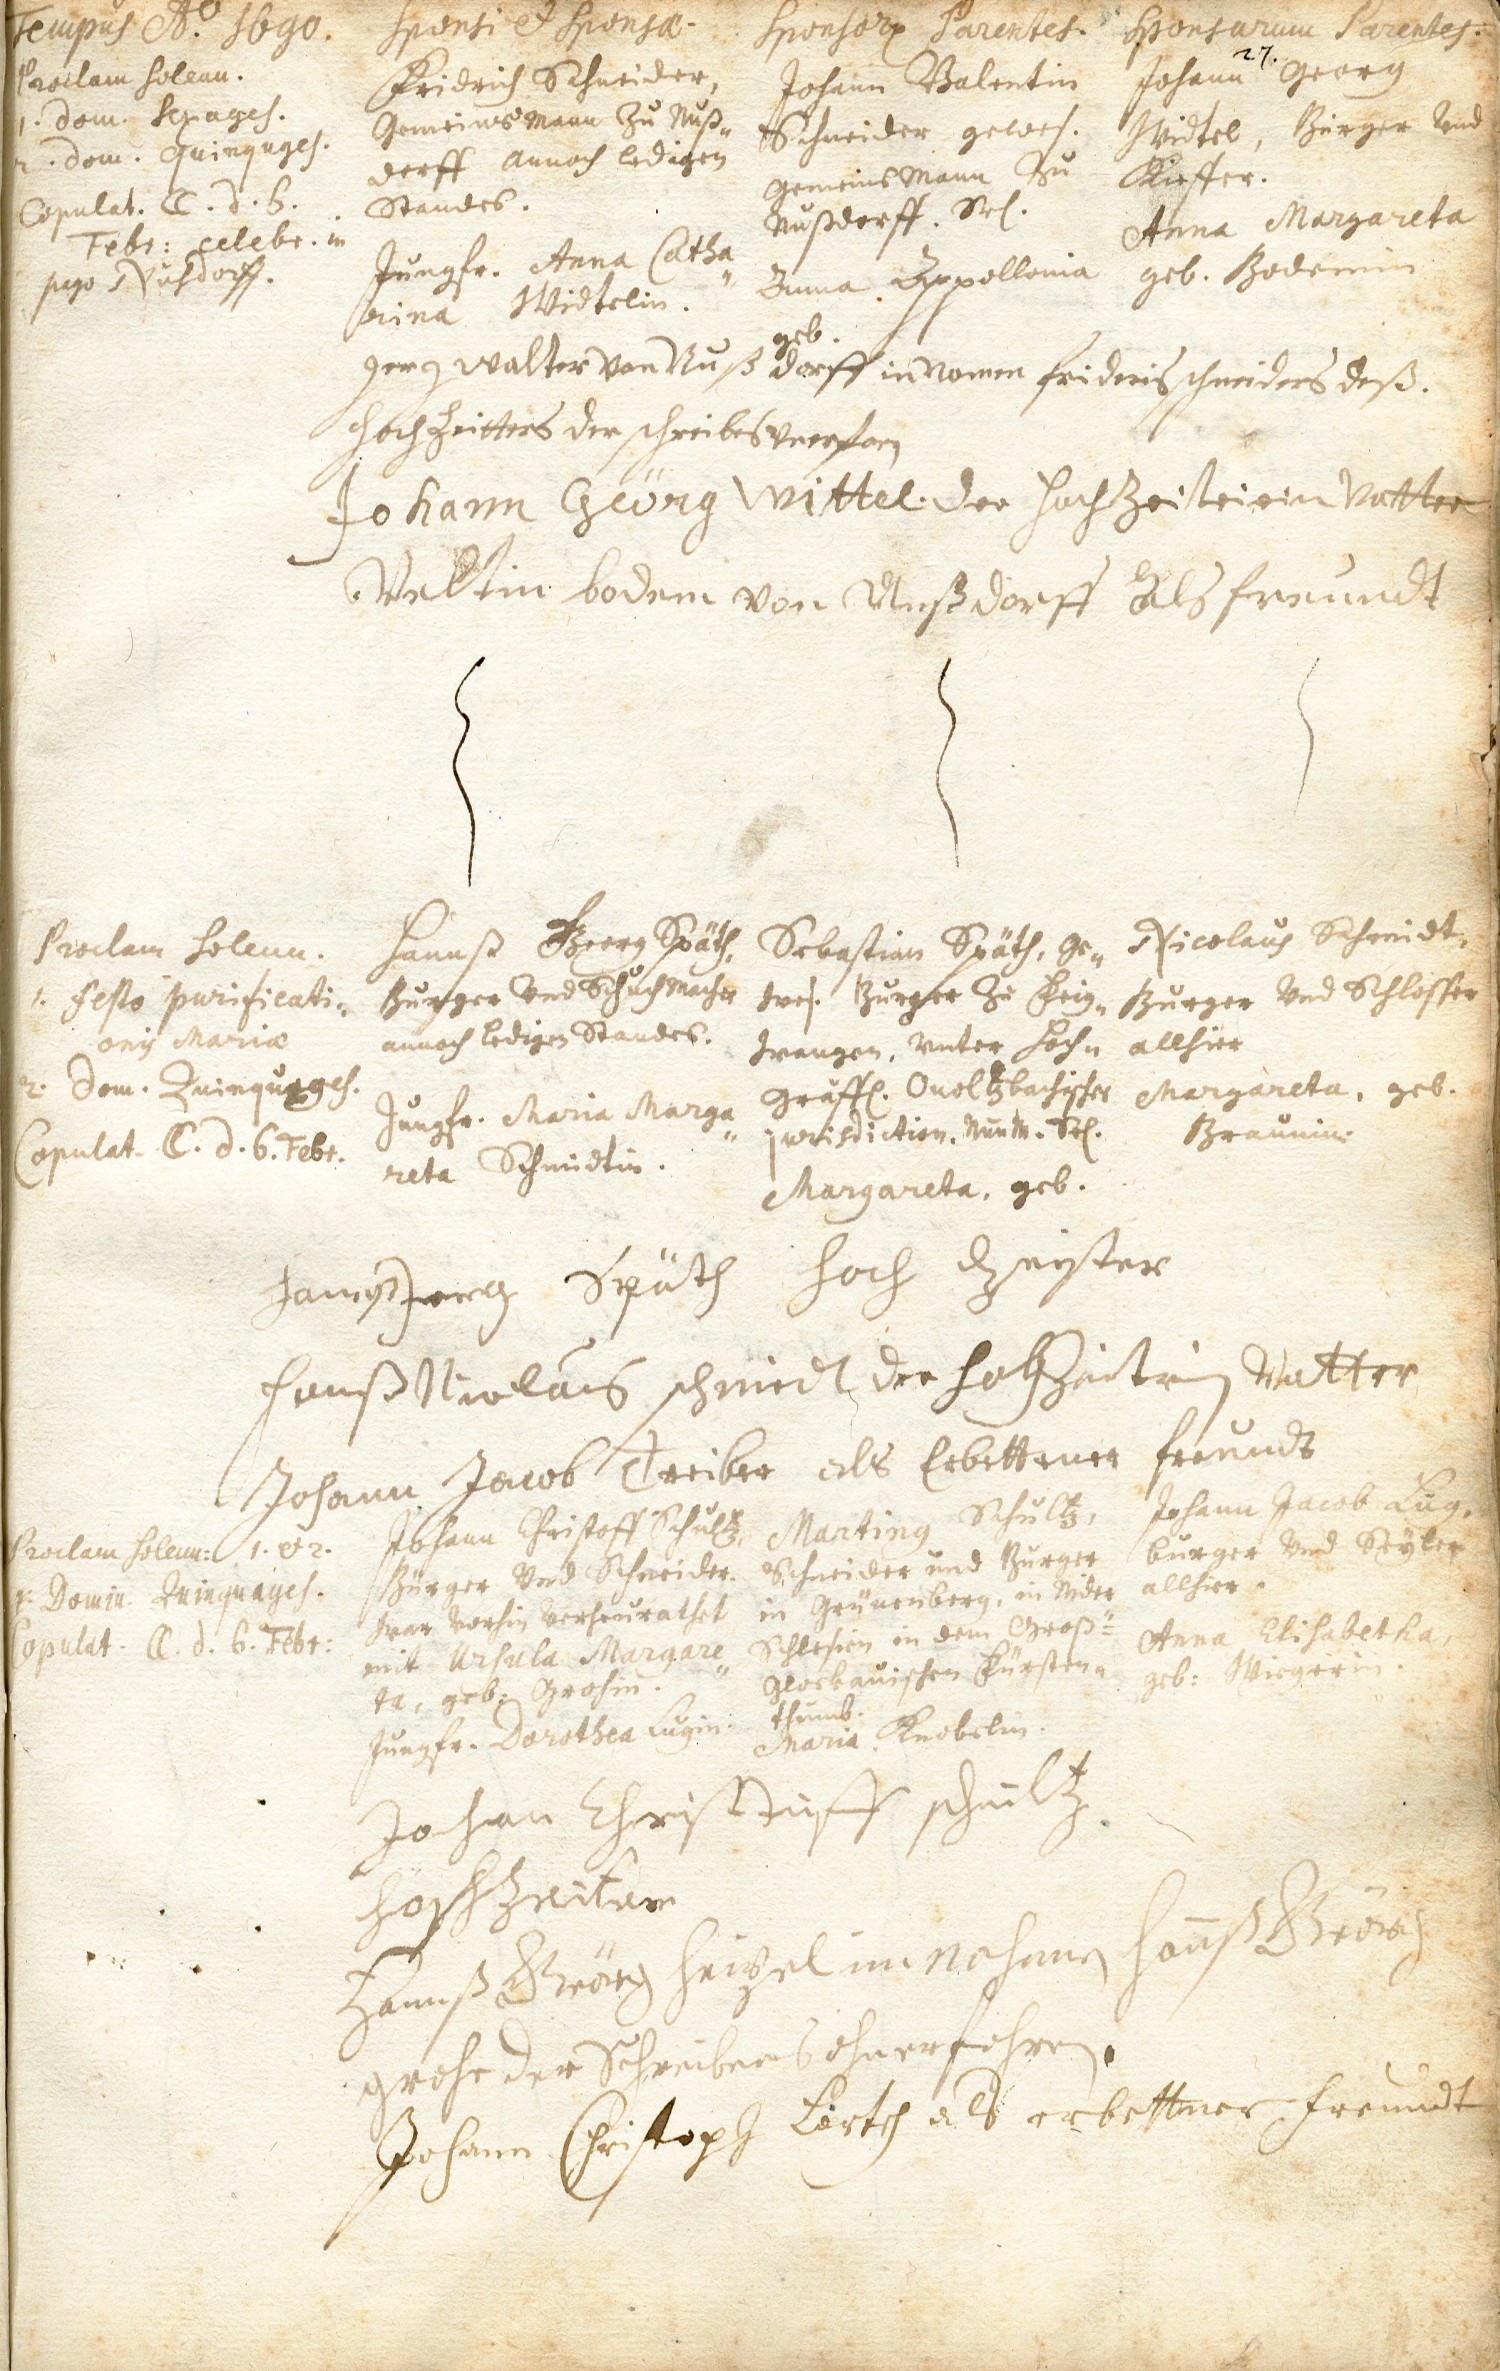 27.
Tempus Aō. 1690.
Proclam solenn.
1. Dom. Sexages.
2. Dom. Quinquages.
Copulat. C. d. 6.
Febr: celebr. in
pago Nusdorff.
Sponsi et Sponsæ.
Fridrich Schneider,
Gemeinsmann zu Nuß„
dorff annoch ledigen
Standes.
Jungfr. Anna Catha„
rina Widtelin.
Sponsorx Parentes.
Johann Valentin
Schneider gewes.
Gemeinsmann zu
Nußdorff. Sel.
Anna Appollonia
geb.
Sponsarum Parentes.
Johann Georg
Widtel, Bürger und
Kieffer.
Anna Margareta
geb. Bodemin
Jerg Walter von Nußdorff in Namen friderich schneiders deß
hochzeitters der schreibes unerfaren
Johann Geörg Wittel der Hochzeiterin Vatter
Veltin bodem von Nußdorff als freundt
Proclam solenn.
1. festo purificati„
onis Mariæ
2. Dom. Quinquages.
Copulat. C. d. 6. Febr.
Hannß Georg Späth,
Burger und Schuchmacher
annoch ledigen Standes.
Jungfr. Maria Marga„
reta Schmidtin.
Sebastian Späth, ge„
wes. Burger zu Feig„
wangen, unter Hoch„
Gräffl. Onoltzbachischer
jurisdiction. Nunm. Sel.
Margareta, geb.
Nicolaus Schmidt,
Burger und Schlosser
allhier
Margareta, geb.
Braunin
Späth hoch Zeister
Hanß Nicolaus schmidt der hochzeiterin Vatter
Johann Jacob Treiber als Erbettener freundt
Proclam solenn: 1. et 2.
Domin. Quinquages.
Copulat. C. d. 6. Febr:
Johann Christoff Schultz,
Bürger und Schneider.
war vorhin verheurathet
mit Ursula Margare„
ta, geb. Grohin.
Jungfr. Dorothea Lugin.
Marting Schultz,
Schneider und Burger
in Grünenberg, in Nider
Schlesien in dem Groß„
Glockauischen Fürsten„
thumb.
Maria Knobelin.
Johann Jacob Lug,
burger und Seyler
allhier.
Anna Elisabetha,
geb: Wiegerin.
Johan Christuff schultz
hochzeiter
Hannß Geörg Heitzel im nahmen Hannß Geörg
grohe der Schreibens ohnerfahren.
Johann Christoph Lertch als erbettner freundt